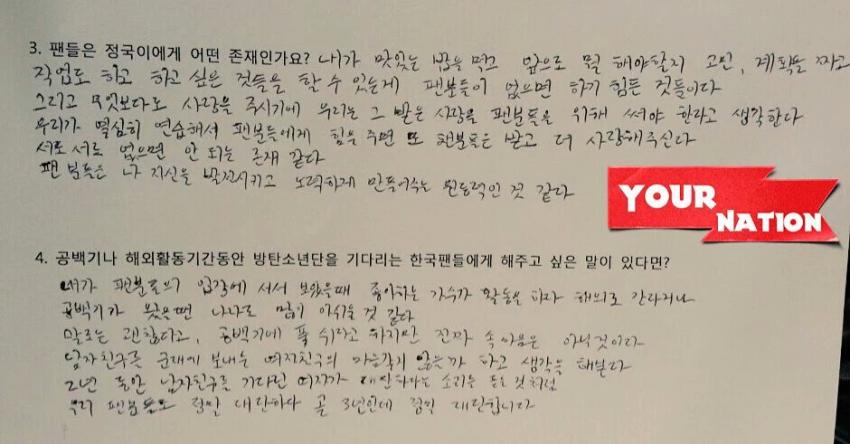 3. 팬들은 정국이에게 어떤 존재인가요? 내가 맛있는 밥을 먹고 앞으로 뭘 해야할지 고민, 계획을 짜고
작업도 하고 하고 싶은 것들을 할 수 있는게 팬분들이 없으면 하기 힘든 것들이다
그리고 무엇보다도 사랑을 주시기에 우리는 그 받은 사랑을 팬분들을 위해 써야 한다고 생각한다
우리가 열심히 연습해서 팬분들에게 힘을 주면 또 팬분들은 받고 더 사랑해주신다
서로 서로 없으면 안 되는 존재 같다
팬분들은 나 자신을 발전시키고 노력하게 만들어주는 원동력인 것 같다
YOUR
NATION
4. 공백기나 해외활동기간동안 방탄소년단을 기다리는 한국팬들에게 해주고 싶은 말이 있다면?
내가 팬분들의 입장에 서서 보았을때 좋아하는 가수가 활동을 하다 해외로 간다거나
공백기가 있으면 나라도 많이 아쉬울 것 같다
말로는 괜찮다고, 공백기에 푹 쉬라고 하지만 진짜 속마음은 아닐것이다
남자친구를 군대에 보내는 여자친구의 마음같지 않을까 하고 생각을 해본다
2년 동안 남자친구를 기다린 여자가 대단하다는 소리를 듣는 것처럼
우리 팬분들도 정말 대단하다 곧 3년인데 정말 대단합니다